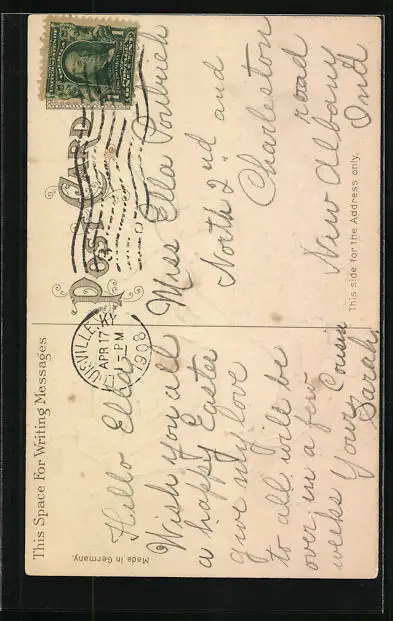 This Space For Writing Messages
POST CARD
LOUISVILLE, KY.
APR 17
5-PM
1908
Hello Ella
Wish you all
a happy Easter
give my love
to all will be
over in a few
weeks Your Cousin
Sarah.
Miss Ella
North 2nd and
Charleston
road
New Albany
Ind
This side for the Address only.
Made in Germany.